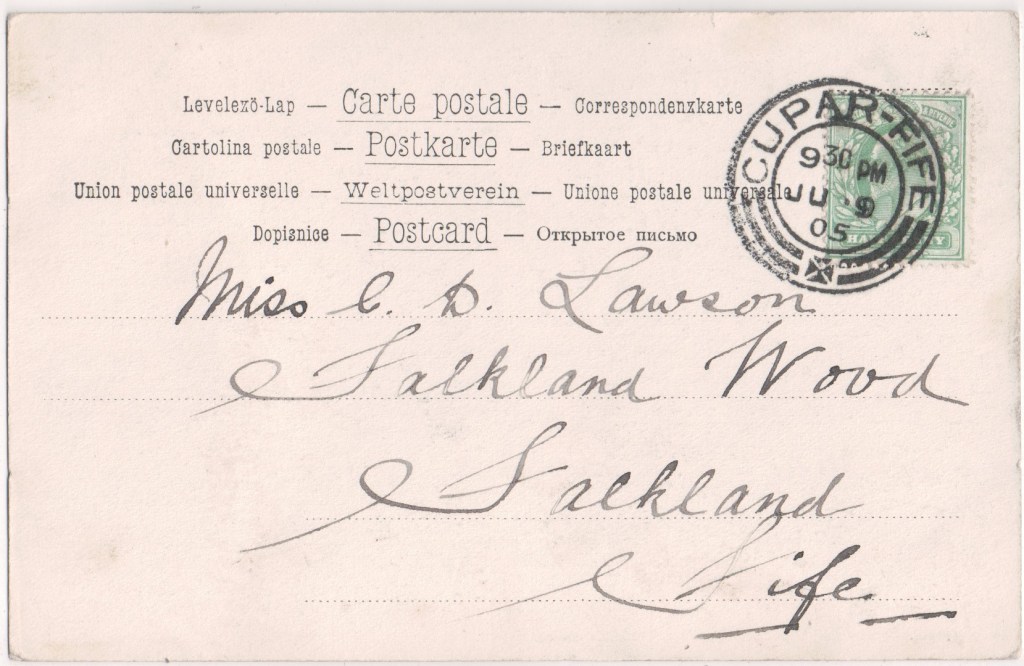 Levelezö-Lap — Carte postale — Correspondenzkarte
Cartolina postale — Postkarte — Briefkaart
Union postale universelle — Weltpostverein — Unione postale universale
Dopisnice — Postcard — Открытое письмо
CUPAR-FIFE
9 30 PM
JU 9
05
Miss C. D. Lawson
Falkland Wood
Falkland
Fife